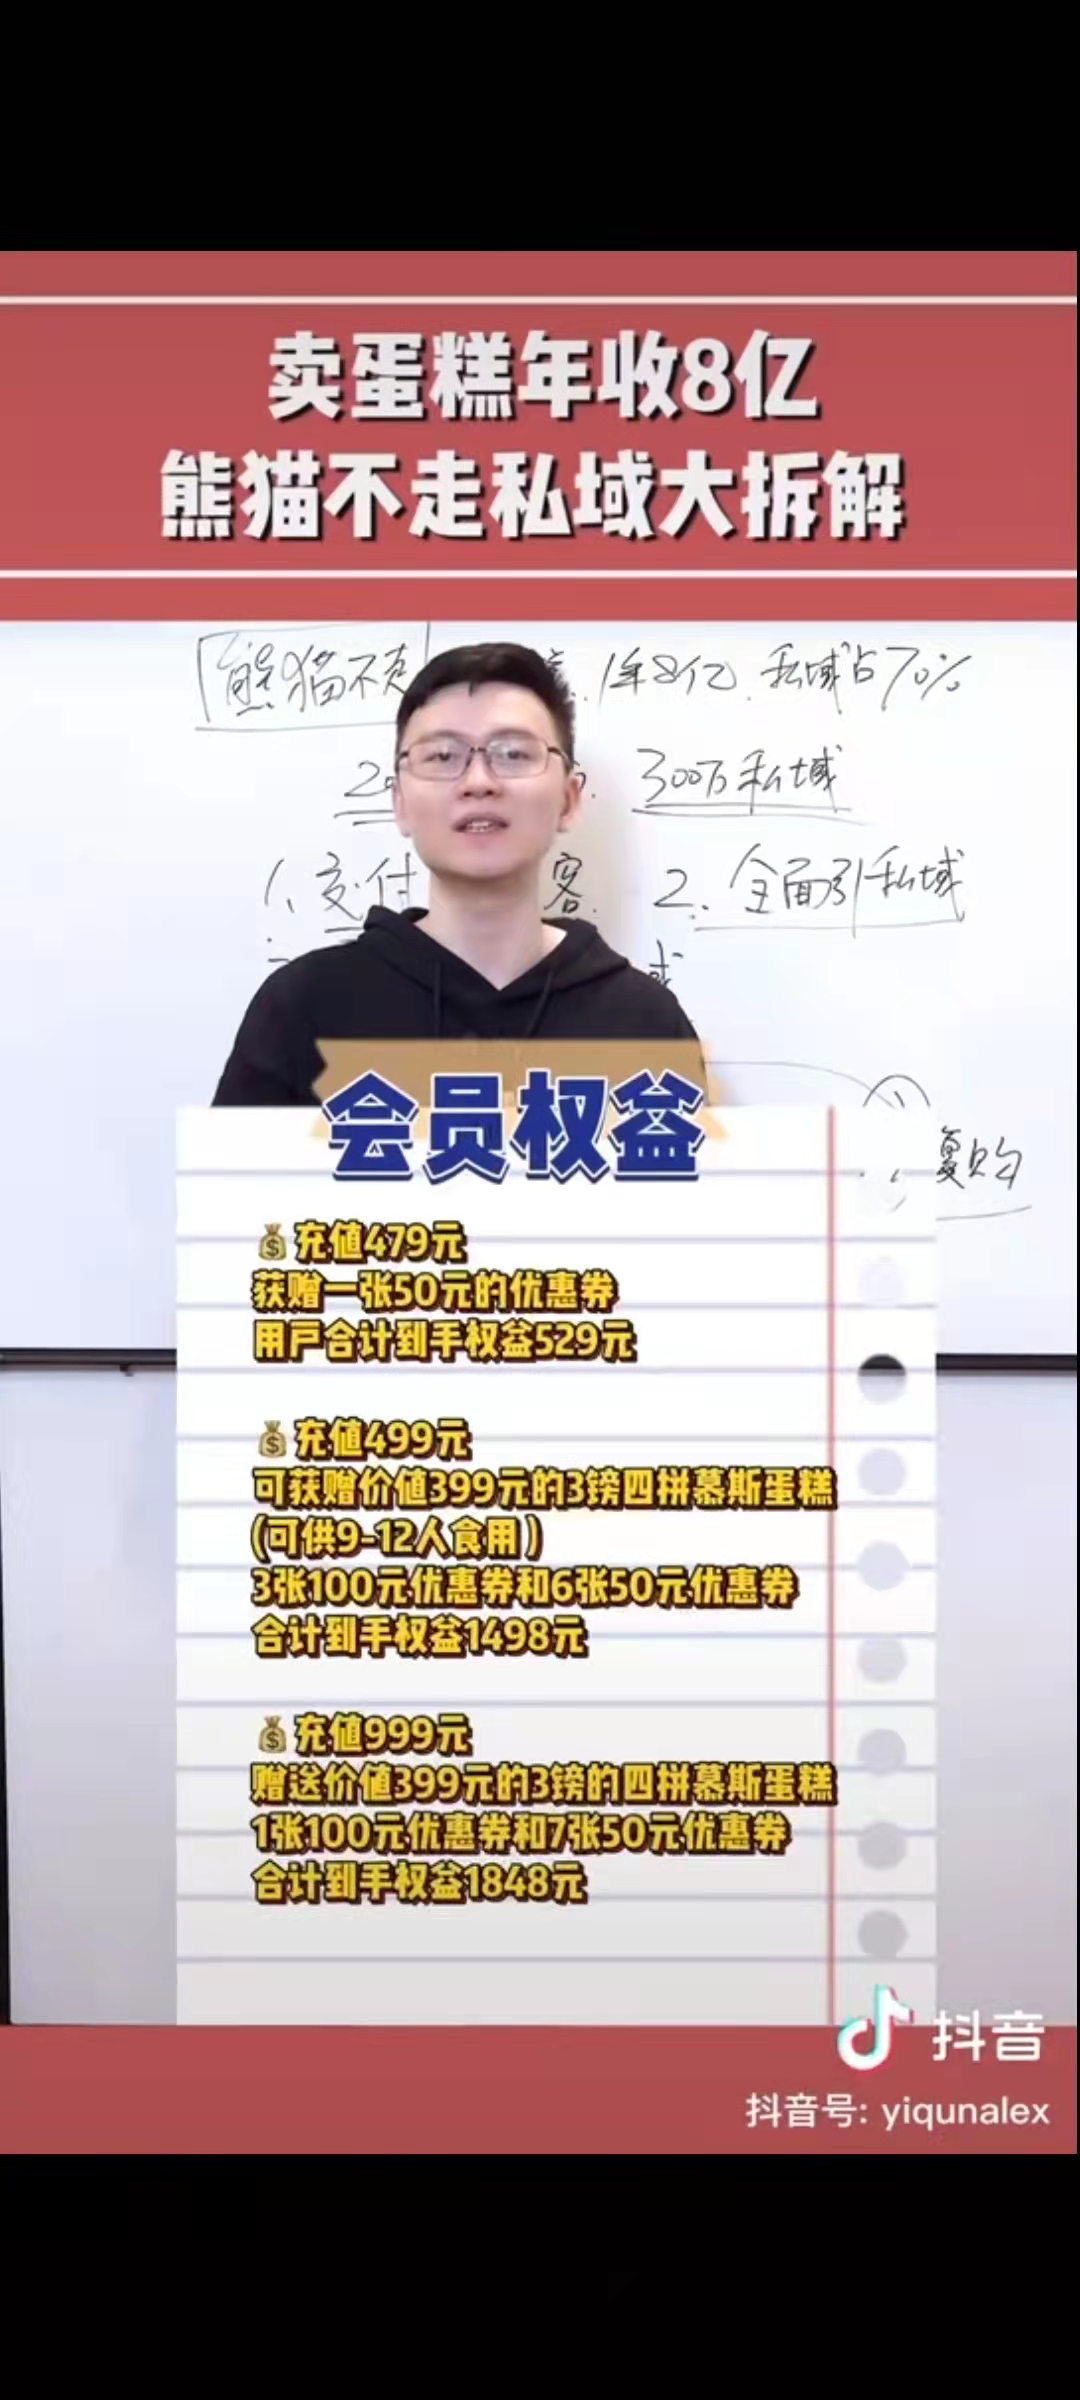 卖蛋糕年收8亿
熊猫不走私域大拆解
熊猫不走 1年8亿. 私域占70%
300万私域
1、交付 客. 2. 全面引私域
复购
会员权益
💰充值479元
获赠一张50元的优惠券
用户合计到手权益529元
💰充值499元
可获赠价值399元的3镑四拼慕斯蛋糕
(可供9-12人食用)
3张100元优惠券和6张50元优惠券
合计到手权益1498元
💰充值999元
赠送价值399元的3镑的四拼慕斯蛋糕
1张100元优惠券和7张50元优惠券
合计到手权益1848元
抖音
抖音号: yiqunalex